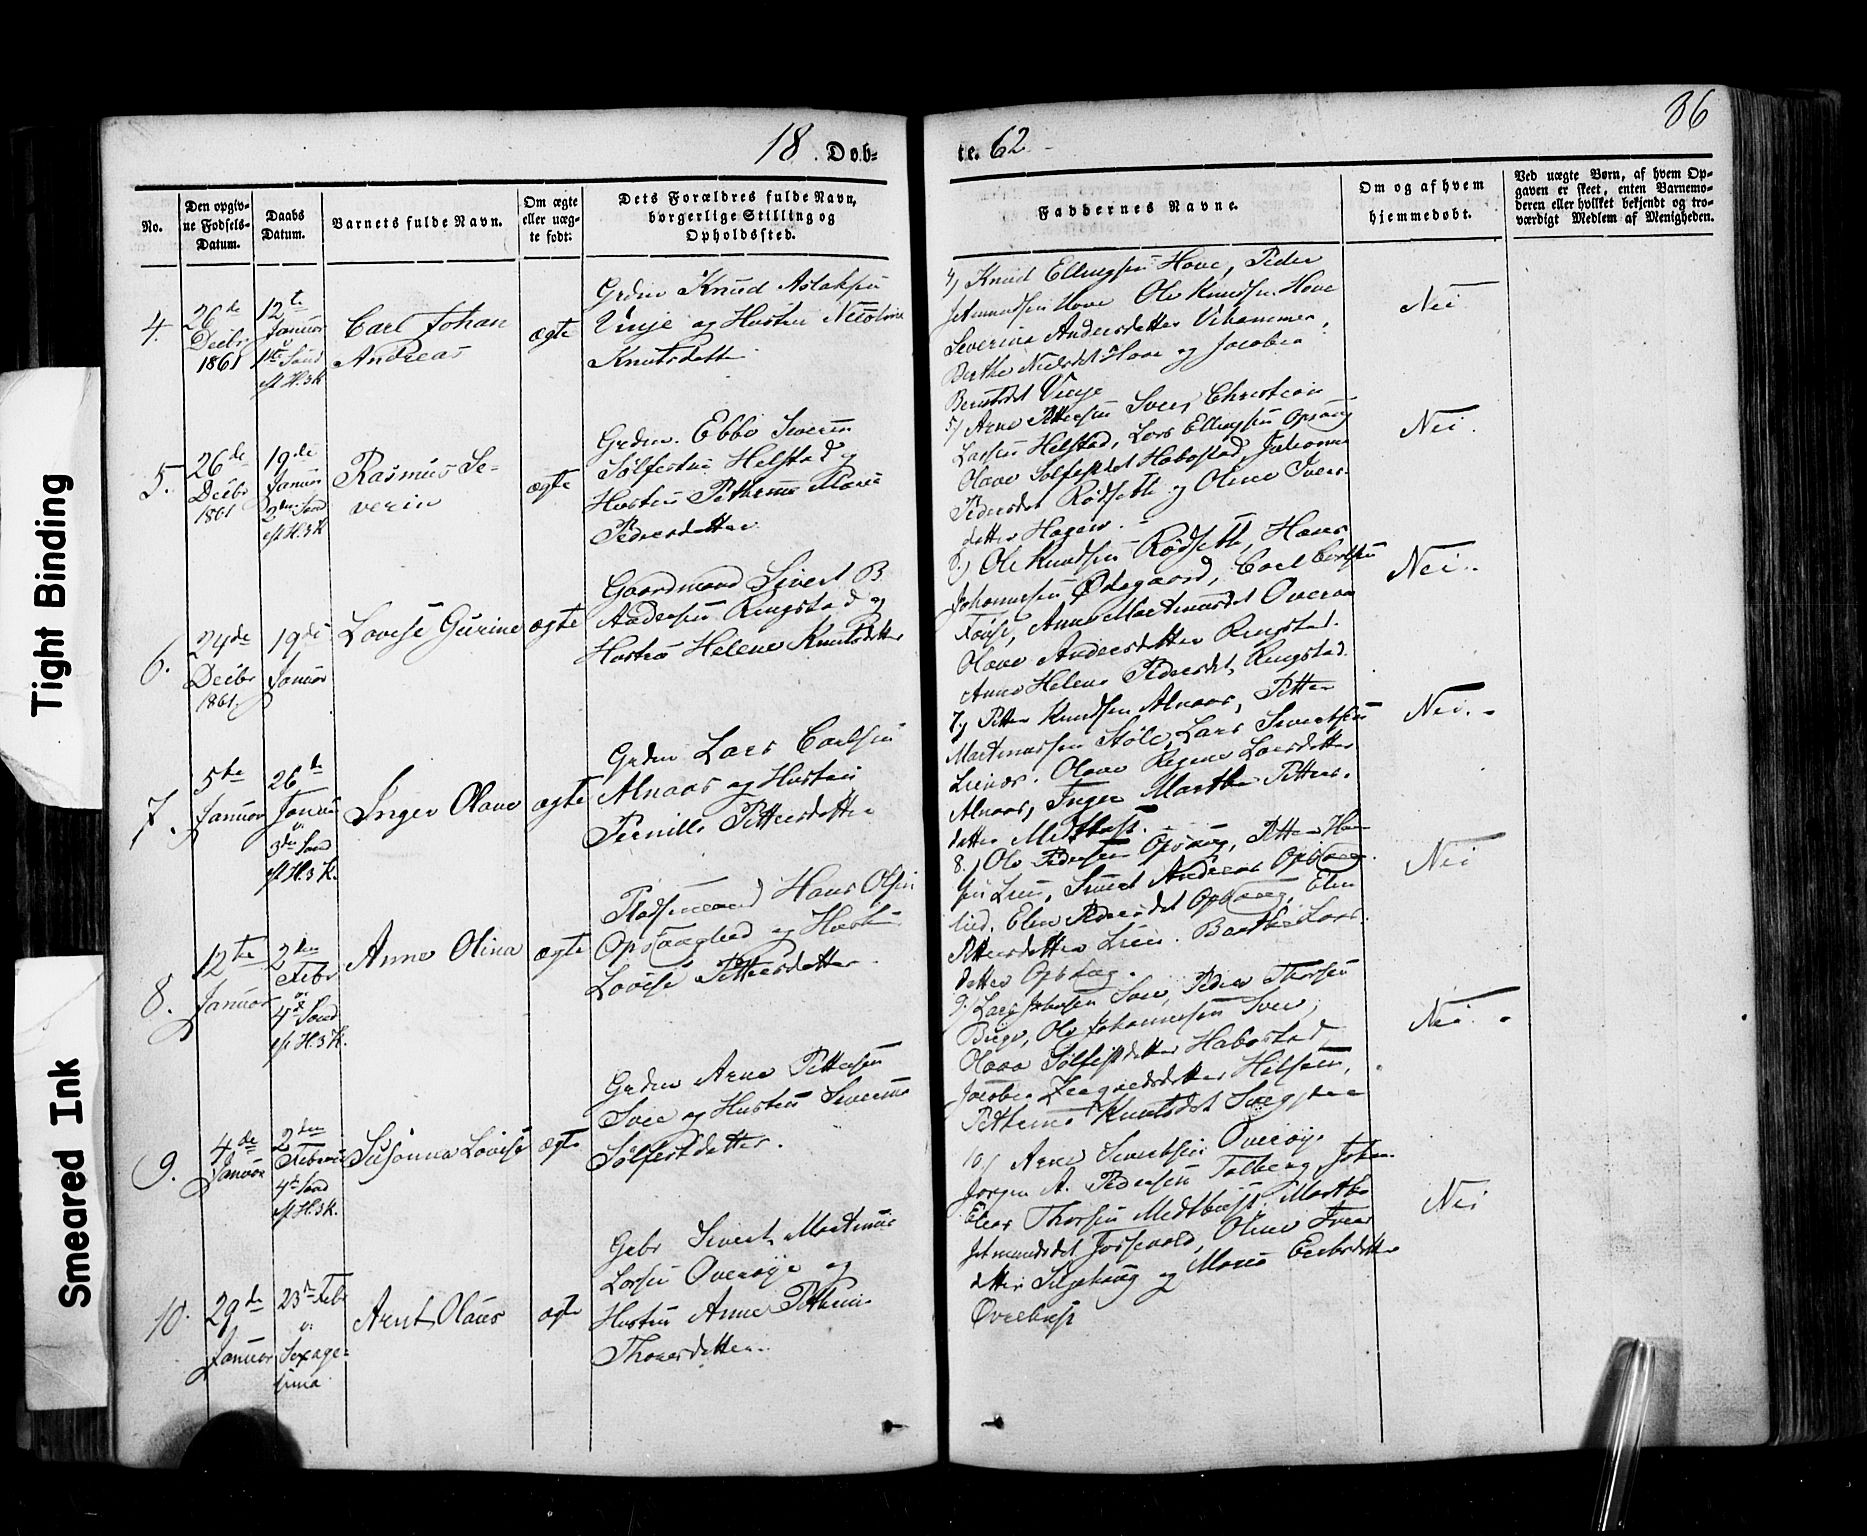 Tight Binding
Smeared Ink
86
18 . Dob-
te. 62
No.
Den opgiv-
ne Fødsels-
Datum.
Daabs
Datum.
Barnets fulde Navn.
Om ægte
eller uæg-
te født:
Dets Forældres fulde Navn,
borgerlige Stilling og
Opholdssted.
Faddernes Navne.
Om og af hvem
hjemmedøbt.
Ved uægte Børn, af hvem Op-
gaven er skeet, enten Barnemo-
deren eller hvilket bekjendt og tro-
værdigt Medlem af Menigheden.
4.
26de
Decbr
1861
12te
Januar
1ste Sønd
ef. H.3K
Carl Johan
Andreas
ægte
Grdm Knud Aslaksen
Vinje og Hustru
Knutsdatter
4) Knud Ellingsen Hove, Peder
Jetmundsen Hove Ole Knudsen Hove
Severine Andersdatter
Berthe Hove og Jacobea
Berntsdet Vinje
Nei
5.
26de
Decbr
1861
19de
Januar
2den Sønd
ef. H.3K
Rasmus Se-
verin
ægte
Grdm. Ebbe Severin
Sølfestsen Helstad og
Hustru Pethrine Marie
Pedersdatter
5) Arne Pettersen Svee, Christian
Larsen Helstad, Lars Ellingsen Opsaug
Olave Solfestdet Habostad, Juliane
Pedersdet Rødseth og Oline Ivers-
datter Hagen.
Nei.
6.
24de
Decbr
1861.
19de
Januar
Lovise Gurine
ægte
Gaardmand Sivert B.
Andersen Ringstad og
Hustru Helene Knutsdatter
6.) Ole Knudsen Rødseth, Hans
Johannesen Ødegaard, Carl Carlsen
Anne Martinusdet Overaa
Olave Andersdatter Ringstad.
Anne Helene Pedersdet, Ringstad.
Nei.
7.
5te
Januar
26de
Januar
3die Sønd
ef. H.3K.
Inger Olave
ægte
Grdm Lars Carlsen
Alnaas og Hustru
Pernille Pettersdatter
7.) Petter Knudsen Alnaas, Petter
Martinussen Støle, Lars Sivertsen
Lienæs. Olave Regine Larsdatter
Alnaas, Inger Marthe Petters-
datter Midtbust.
Nei.
8.
12te
Januar
2den
Febr
4de Sønd
ef. H.3K.
Anne Olina
ægte
Pladsmand Hans Olsen
Opsauglied og Hustru
Lovise Pettersdatter.
8.) Ole Pedersen Opsaug, Petter Han-
sen Lien, Sivert Andreas Opsaug-
lied. Elen Pedersdet Opsaug, Elen
Pettersdatter Lien. Barthe Lars-
datter Opsaug.
Nei
9.
4de
Januar
2den
Februar
4de Sønd
ef. H.3K.
Susanna Lovise
ægte
Grdm Arne Pettersen
Svee og Hustru Severine
Sølfestdatter.
9.) Lars Johnsen Svee, Peder Thorsen
Ole Johannesen Svee,
Olava Sølfestdatter Habostad,
Jacobea
Pethrine Knutsdet
Nei.
10.
29de
Januar
23de Febr
Sexage-
sima
Arnt Olaus
ægte
Gbr Sivert Martinus
Larsen Overøye og
Hustru Anne Pethrine
Thoresdatter.
10) Arne Sivertsen Overøye
Jørgen A. Pedersen Talberg, Johan
Elias Thorsen Midtbust, Marthe
Jetmundsdet Fossevold, Oline Iver
datter og Marie
Overbust
Nei